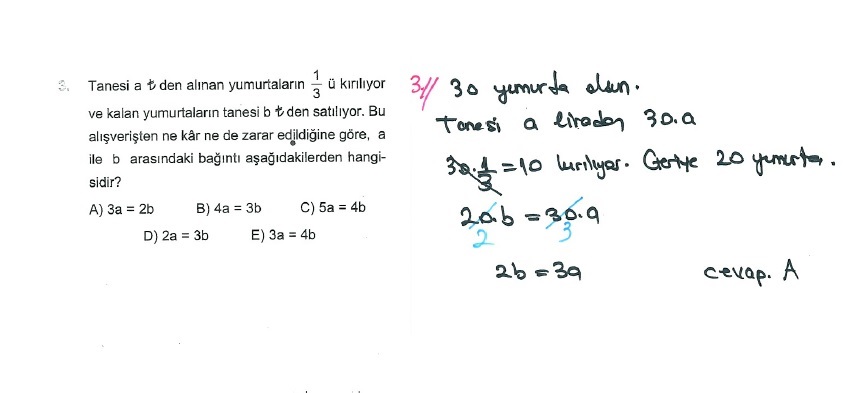 3. Tanesi a ₺ den alınan yumurtaların 1/3 ü kırılıyor
ve kalan yumurtaların tanesi b ₺ den satılıyor. Bu
alışverişten ne kâr ne de zarar edildiğine göre, a
ile b arasındaki bağıntı aşağıdakilerden hangi-
sidir?
A) 3a = 2b B) 4a = 3b C) 5a = 4b
D) 2a = 3b E) 3a = 4b
3// 30 yumurta olsun.
Tanesi a liradan 30.a
30.1/3 = 10 kırılıyor. Geriye 20 yumurta.
20.b = 30.a
2 3
2b = 3a cevap. A